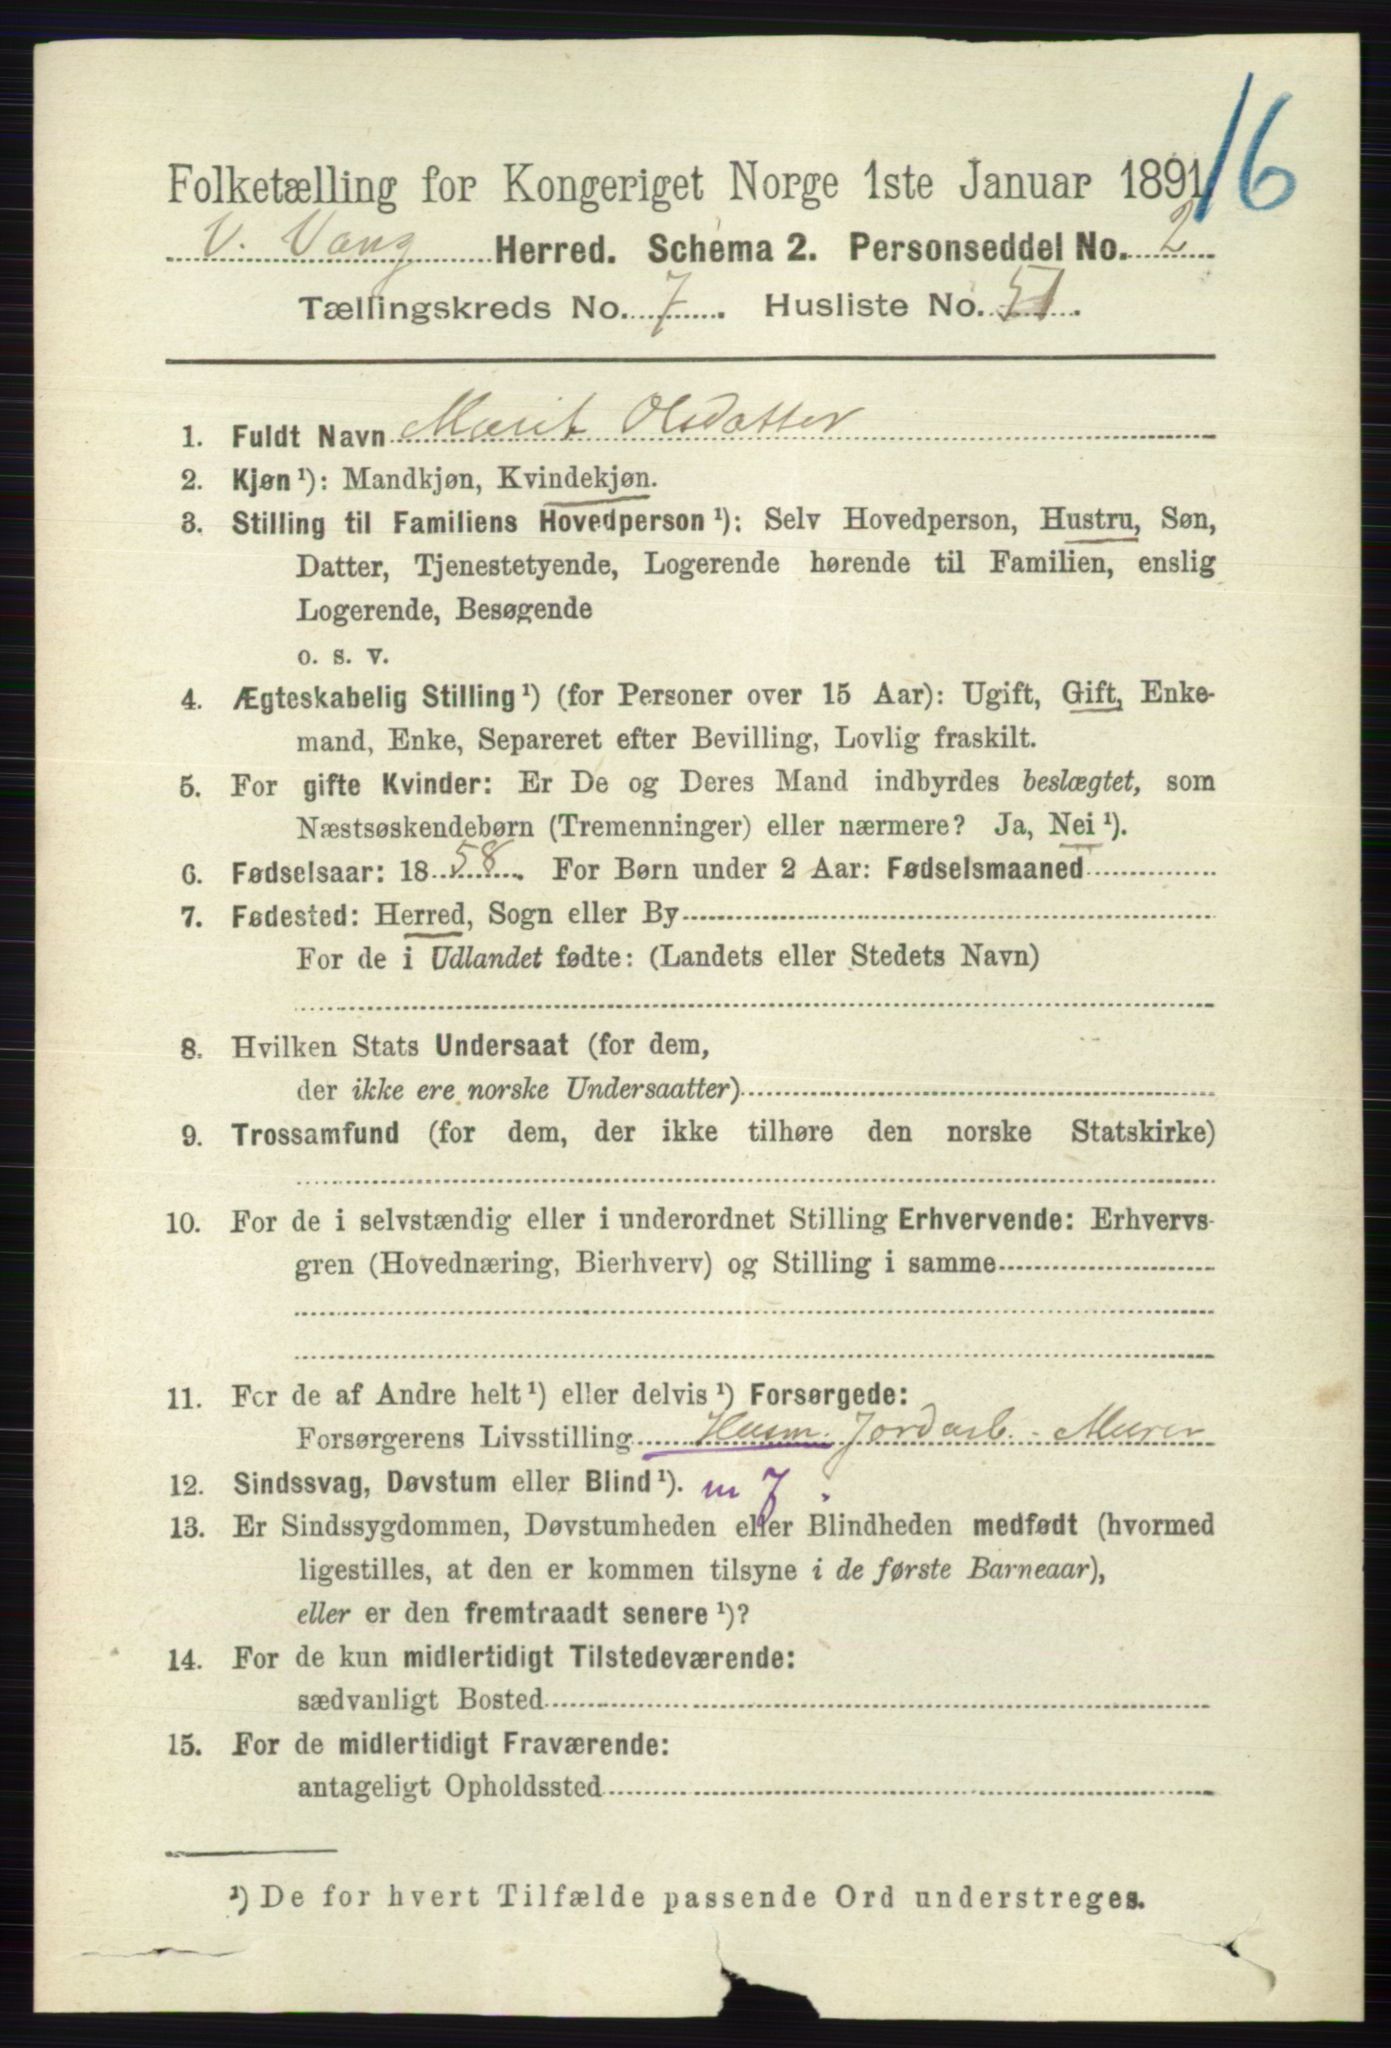 16
Folketælling for Kongeriget Norge 1ste Januar 1891.
V. Vang Herred. Schema 2. Personseddel No. 2
Tællingskreds No. 7. Husliste No. 51.
1. Fuldt Navn Marit Olsdatter
2. Kjøn¹): Mandkjøn, Kvindekjøn.
3. Stilling til Familiens Hovedperson¹): Selv Hovedperson, Hustru, Søn,
Datter, Tjenestetyende, Logerende hørende til Familien, enslig
Logerende, Besøgende
o. s. v.
4. Ægteskabelig Stilling¹) (for Personer over 15 Aar): Ugift, Gift, Enke-
mand, Enke, Separeret efter Bevilling, Lovlig fraskilt.
5. For gifte Kvinder: Er De og Deres Mand indbyrdes beslægtet, som
Næstsøskendebørn (Tremenninger) eller nærmere? Ja, Nei¹).
6. Fødselsaar: 1858. For Børn under 2 Aar: Fødselsmaaned
7. Fødested: Herred, Sogn eller By
For de i Udlandet fødte: (Landets eller Stedets Navn)
8. Hvilken Stats Undersaat (for dem,
der ikke ere norske Undersaatter)
9. Trossamfund (for dem, der ikke tilhøre den norske Statskirke)
10. For de i selvstændig eller i underordnet Stilling Erhvervende: Erhvervs-
gren (Hovednæring, Bierhverv) og Stilling i samme
11. For de af Andre helt¹) eller delvis¹) Forsørgede:
Forsørgerens Livsstilling Husm. Jordarb. - Murer
12. Sindssvag, Døvstum eller Blind¹). m 7.
13. Er Sindssygdommen, Døvstumheden eller Blindheden medfødt (hvormed
ligestilles, at den er kommen tilsyne i de første Barneaar),
eller er den fremtraadt senere¹)?
14. For de kun midlertidigt Tilstedeværende:
sædvanligt Bosted
15. For de midlertidigt Fraværende:
antageligt Opholdssted
¹) De for hvert Tilfælde passende Ord understreges.